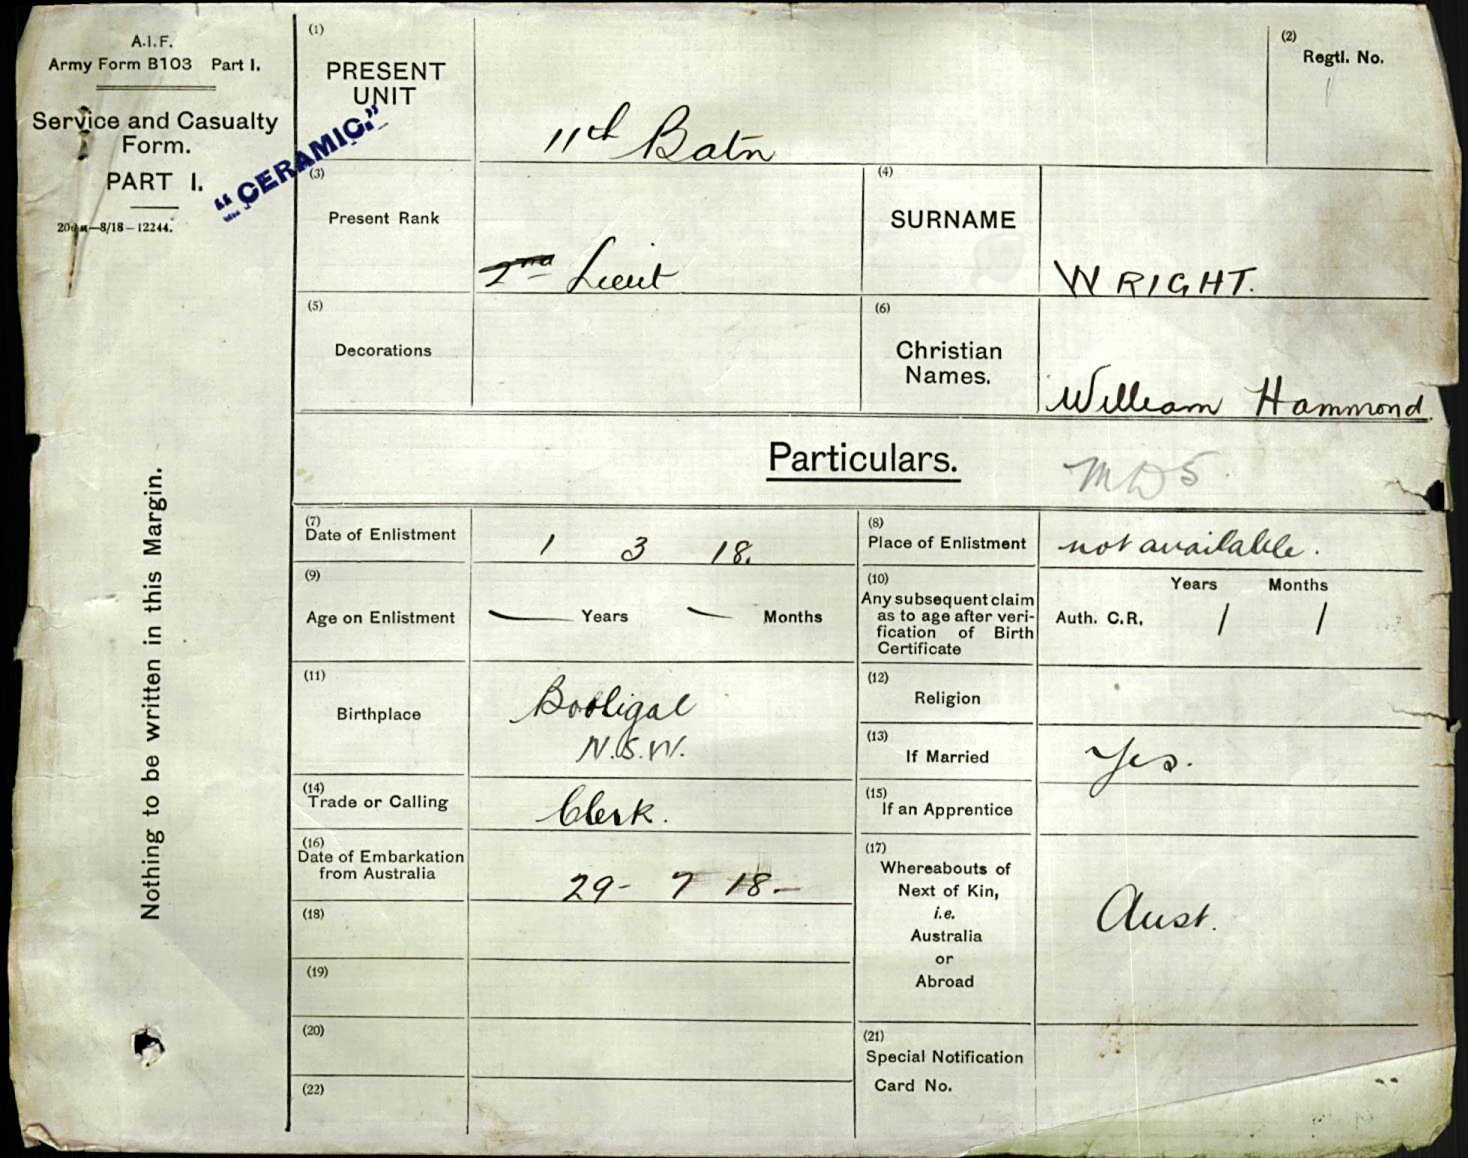 A.I.F.
Army Form B103 Part I.
Service and Casualty
Form.
PART I.
"CERAMIC."
Nothing to be written in this Margin.
(1)
PRESENT
UNIT
11th Batn
(2)
Regtl. No.
(3)
Present Rank
2nd Lieut
(4)
SURNAME
WRIGHT.
(5)
Decorations
(6)
Christian
Names.
William Hammond
Particulars.
MD5
(7)
Date of Enlistment
1 3 18.
(8)
Place of Enlistment
not available.
(9)
Age on Enlistment
— Years — Months
(10)
Any subsequent claim
as to age after veri-
fication of Birth
Certificate
Years Months
Auth. C.R. / /
(11)
Birthplace
Booligal
N.S.W.
(12)
Religion
(13)
If Married
Yes.
(14)
Trade or Calling
Clerk.
(15)
If an Apprentice
(16)
Date of Embarkation
from Australia
29- 7 18-
(17)
Whereabouts of
Next of Kin,
i.e.
Australia
or
Abroad
Aust.
(18)
(19)
(20)
(21)
Special Notification
Card No.
(22)